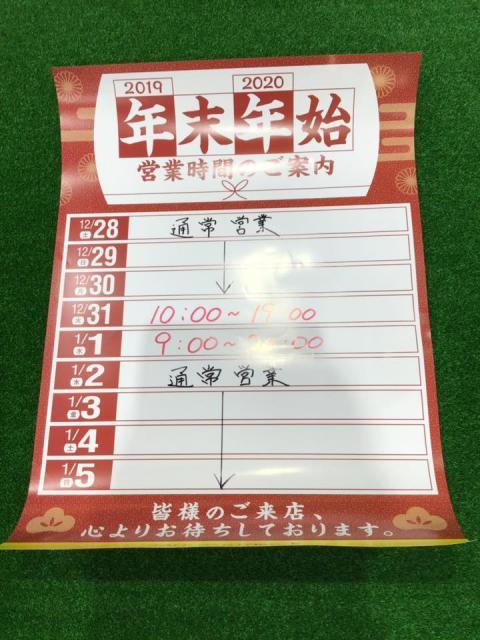 2019 2020
年末年始
営業時間のご案内
12/28 土 通常営業
12/29 日
12/30 月
12/31 火 10:00~19:00
1/1 水 9:00~20:00
1/2 木 通常営業
1/3 金
1/4 土
1/5 日
皆様のご来店、
心よりお待ちしております。